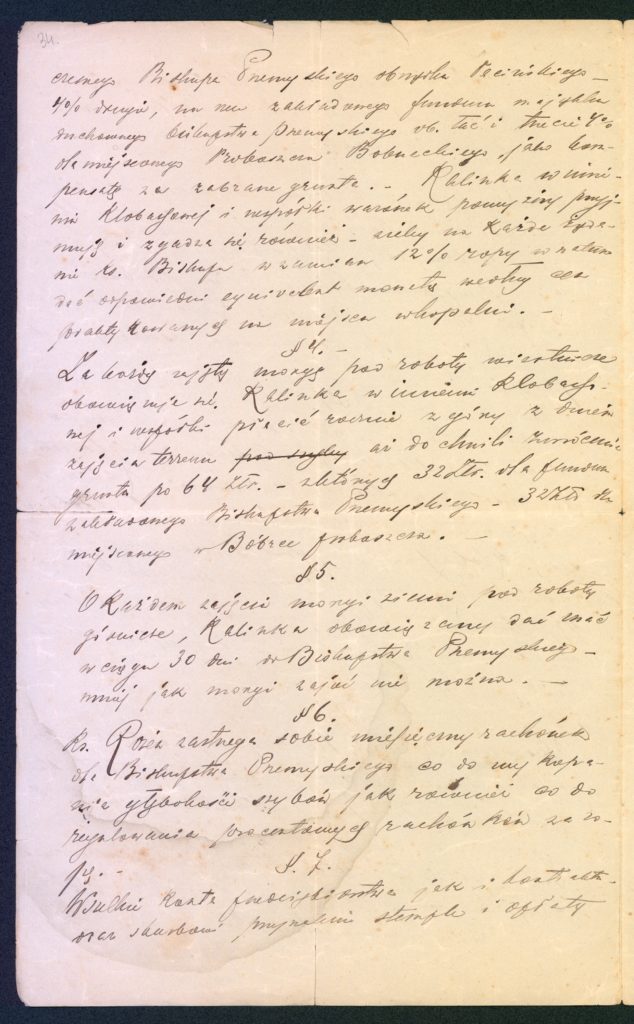 34.
czesnego Biskupa Przemyskiego obrządku łacińskiego –
4% drugi, na rzecz zakładowego funduszu majątku
duchownego Biskupstwa Przemyskiego ob. łać i trzecie 4%
dla miejscowego Proboszcza Bobreckiego, jako kom-
pensatę za zabrane grunta. – Kalinka w imie-
niu Klobassowej i wspólki warunek powyższy przyj-
muje i zgadza się również – ażeby na każde żąda-
nie ks. Biskupa w zamian 12% ropy w natu
dać odpowiedni equivalent monetą według cen
praktykowanych na miejscu w kopalni. –
§ 4. –
Za każdy zajęty morg pod roboty wiertnicze
obowięzuje się Kalinka w imieniu Klobass-
wej i wspólki płacić rocznie z góry z dniem
zajęcia terenu pod szyby aż do chwili zwrócenia
gruntu po 64 złr. – z których 32 złr. dla fundusz
zakładowego Biskupstwa Przemyskiego – 32 złr dla
miejscowego w Bóbrce proboszcza. –
§ 5.
O każdem zajęciu morgi ziemi pod roboty
górnicze, Kalinka obowiązany dać znać
w ciągu 30 dni do Biskupstwa Przemyskiego –
mniej jak morgi zająć nie można. –
§ 6.
Ks. Rożen zastrzega sobie miesięczny rachónek
dla Biskupstwa Przemyskiego co do wykopa-
nia głębokości szybów jak również co do
regulowania procentowych rachónków za ro-
pę. –
§. 7.
Wszelkie koszta jak i kontraktu
oraz skarbowi przynależne stemple i opłaty